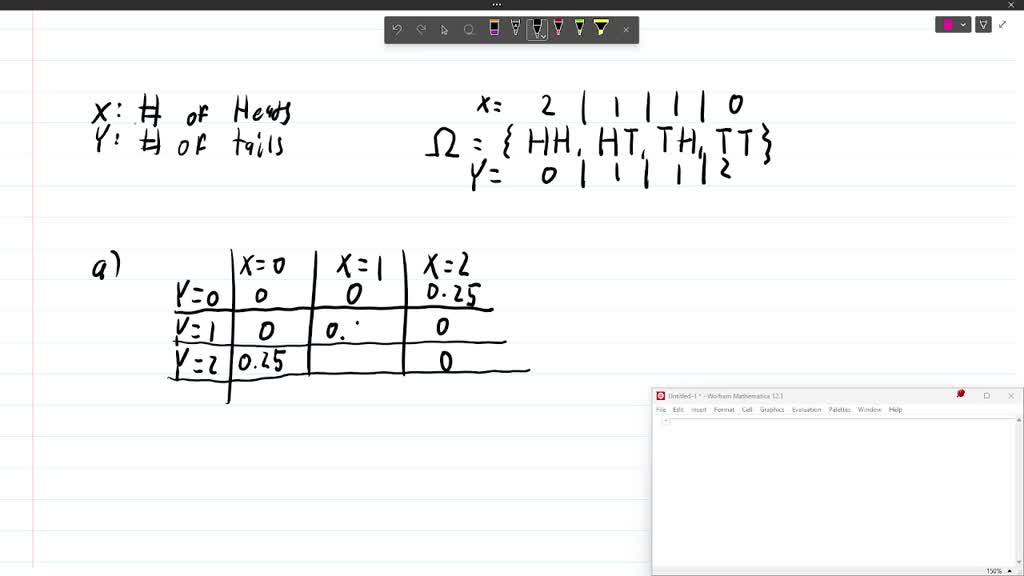 X: # of Heads
Y: # of tails
X= 2 | 1 | 1 | 0
Ω = { HH, HT, TH, TT}
Y= 0 | 1 | 1 | 2
a)
X=0 | X=1 | X=2
Y=0 0 0 0.25
Y=1 0 0. 0
Y=2 0.25 0
Untitled-1 * - Wolfram Mathematica 12.1
File Edit Insert Format Cell Graphics Evaluation Palettes Window Help
150%